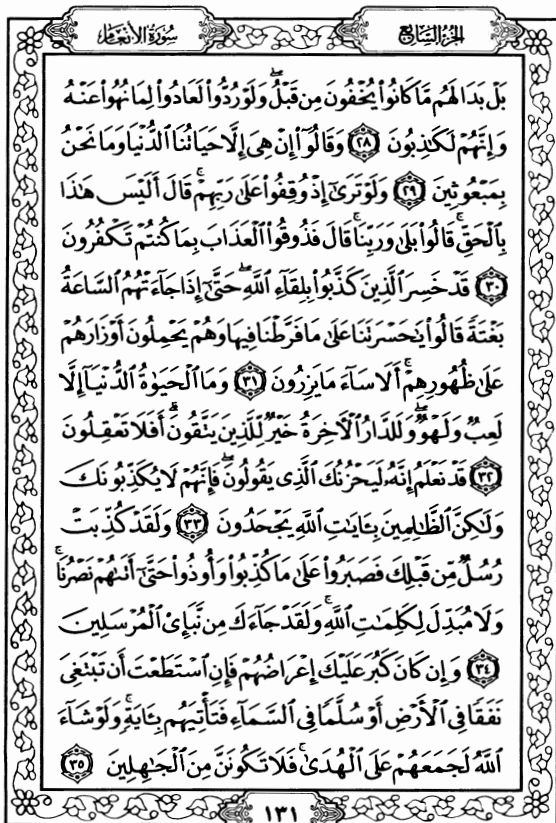 سورة الأنعام
الجزء السابع
بَلْ بَدَا لَهُم مَّا كَانُوا۟ يُخْفُونَ مِن قَبْلُ ۖ وَلَوْ رُدُّوا۟ لَعَادُوا۟ لِمَا نُهُوا۟ عَنْهُ
وَإِنَّهُمْ لَكَٰذِبُونَ ٢٨ وَقَالُوٓا۟ إِنْ هِىَ إِلَّا حَيَاتُنَا ٱلدُّنْيَا وَمَا نَحْنُ
بِمَبْعُوثِينَ ٢٩ وَلَوْ تَرَىٰٓ إِذْ وُقِفُوا۟ عَلَىٰ رَبِّهِمْ ۚ قَالَ أَلَيْسَ هَٰذَا
بِٱلْحَقِّ ۚ قَالُوا۟ بَلَىٰ وَرَبِّنَا ۚ قَالَ فَذُوقُوا۟ ٱلْعَذَابَ بِمَا كُنتُمْ تَكْفُرُونَ
٣٠ قَدْ خَسِرَ ٱلَّذِينَ كَذَّبُوا۟ بِلِقَآءِ ٱللَّهِ ۖ حَتَّىٰٓ إِذَا جَآءَتْهُمُ ٱلسَّاعَةُ
بَغْتَةً قَالُوا۟ يَٰحَسْرَتَنَا عَلَىٰ مَا فَرَّطْنَا فِيهَا وَهُمْ يَحْمِلُونَ أَوْزَارَهُمْ
عَلَىٰ ظُهُورِهِمْ ۚ أَلَا سَآءَ مَا يَزِرُونَ ٣١ وَمَا ٱلْحَيَوٰةُ ٱلدُّنْيَآ إِلَّا
لَعِبٌ وَلَهْوٌ ۖ وَلَلدَّارُ ٱلْءَاخِرَةُ خَيْرٌ لِّلَّذِينَ يَتَّقُونَ ۗ أَفَلَا تَعْقِلُونَ
٣٢ قَدْ نَعْلَمُ إِنَّهُۥ لَيَحْزُنُكَ ٱلَّذِى يَقُولُونَ ۖ فَإِنَّهُمْ لَا يُكَذِّبُونَكَ
وَلَٰكِنَّ ٱلظَّٰلِمِينَ بِـَٔايَٰتِ ٱللَّهِ يَجْحَدُونَ ٣٣ وَلَقَدْ كُذِّبَتْ
رُسُلٌ مِّن قَبْلِكَ فَصَبَرُوا۟ عَلَىٰ مَا كُذِّبُوا۟ وَأُوذُوا۟ حَتَّىٰٓ أَتَىٰهُمْ نَصْرُنَا ۚ
وَلَا مُبَدِّلَ لِكَلِمَٰتِ ٱللَّهِ ۚ وَلَقَدْ جَآءَكَ مِن نَّبَإِى۟ ٱلْمُرْسَلِينَ
٣٤ وَإِن كَانَ كَبُرَ عَلَيْكَ إِعْرَاضُهُمْ فَإِنِ ٱسْتَطَعْتَ أَن تَبْتَغِىَ
نَفَقًا فِى ٱلْأَرْضِ أَوْ سُلَّمًا فِى ٱلسَّمَآءِ فَتَأْتِيَهُم بِـَٔايَةٍ ۚ وَلَوْ شَآءَ
ٱللَّهُ لَجَمَعَهُمْ عَلَى ٱلْهُدَىٰ ۚ فَلَا تَكُونَنَّ مِنَ ٱلْجَٰهِلِينَ ٣٥
١٣١